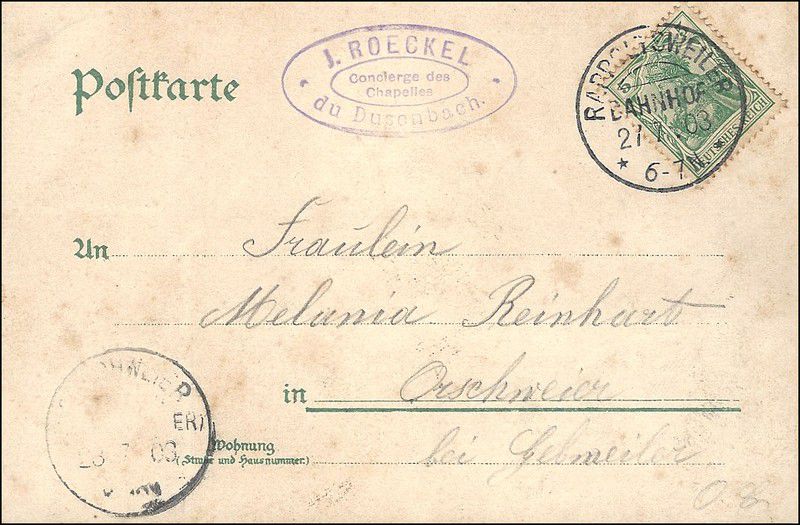 Postkarte
J. ROECKEL
Concierge des
Chapelles
du Dusenbach.
RAPPOLTSWEILER
BAHNHOF
27 03
6-7N
DEUTSCHES REICH
An Fräulein
Melania Reinhart
in Orschweier
bei Gebweiler
Wohnung
(Straße und Hausnummer.)
WEIER
ER)
7 03